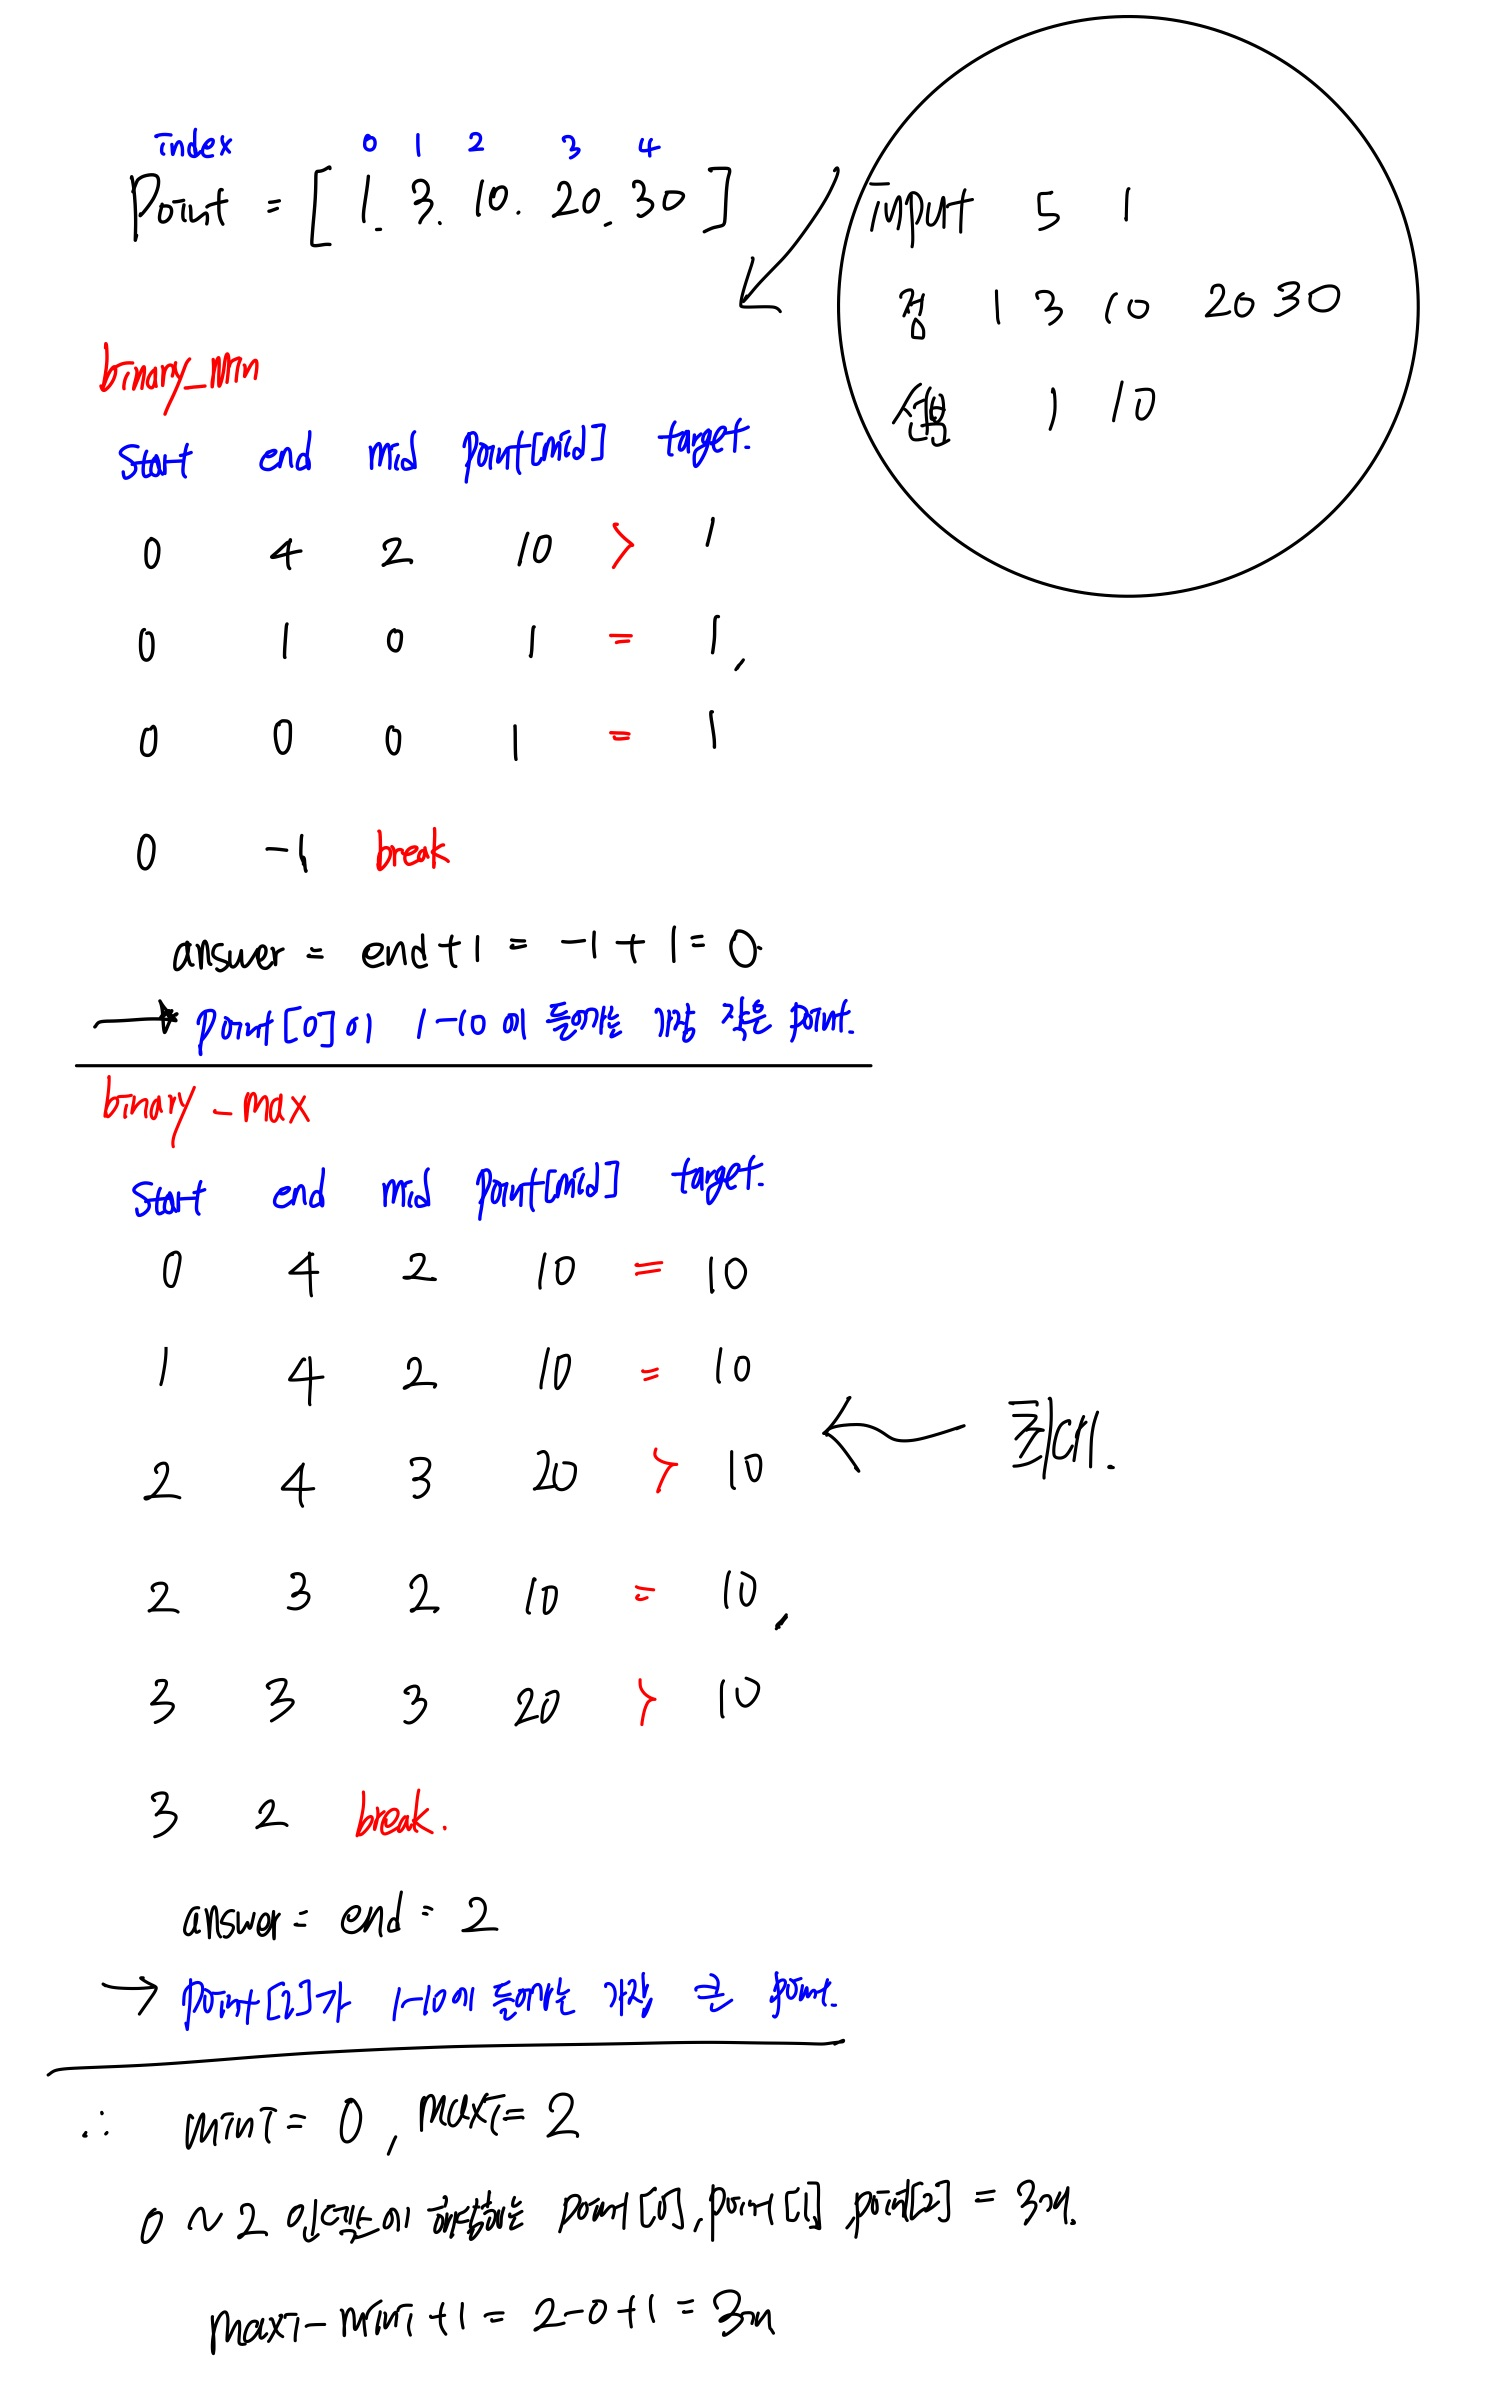 index 0 1 2 3 4
Point = [ 1. 3. 10. 20. 30 ]
input 5 1
점 1 3 10 20 30
선분 1 10
binary_min
start end mid point[mid] target.
0 4 2 10 > 1
0 1 0 1 = 1,
0 0 0 1 = 1
0 -1 break
answer = end+1 = -1+1=0.
→ point[0]이 1-10에 들어가는 가장 작은 point.
binary_max
start end mid point[mid] target.
0 4 2 10 = 10
1 4 2 10 = 10
← 최대.
2 4 3 20 > 10
2 3 2 10 = 10,
3 3 3 20 > 10
3 2 break.
answer = end = 2
→ point[2]가 1-10에 들어가는 가장 큰 point.
∴ mini = 0, maxi = 2
0 ~ 2 인덱스에 해당하는 point[0], point[1], point[2] = 3개.
maxi - mini +1 = 2-0+1 = 3개